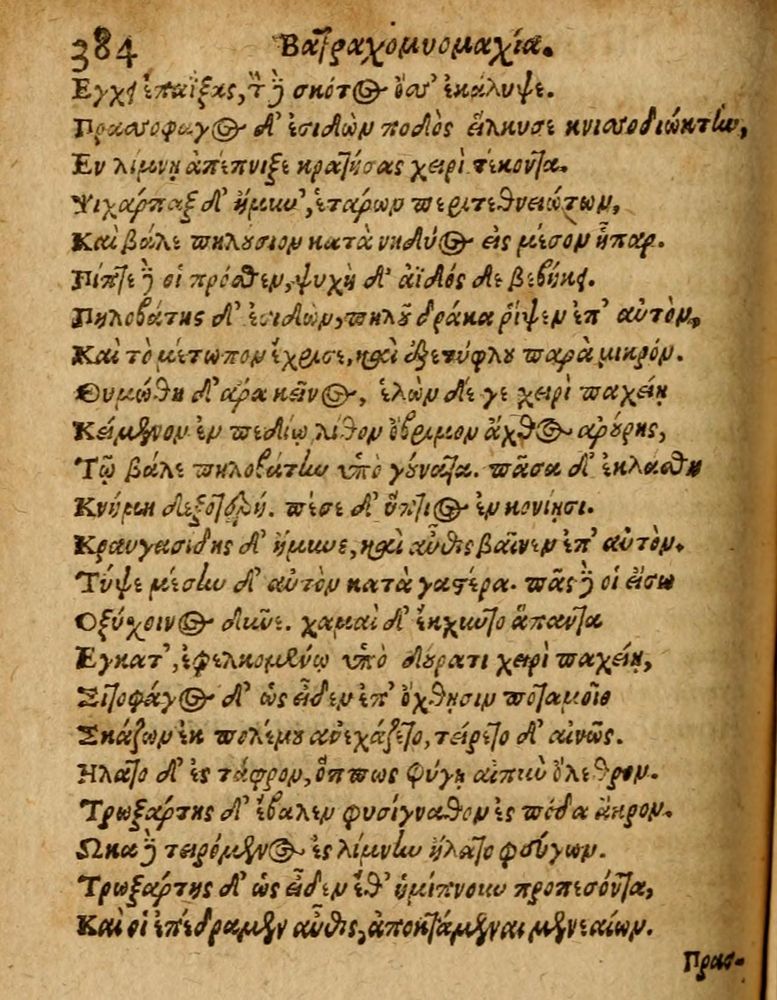 384 Βατραχομυομαχία.
Εγχει ἐπαΐξας, τὸν δὲ σκότος ὄσσ' ἐκάλυψε.
Πρασσοφαγος δ' ἐσιδὼν ποδὸς εἵλκυσε κνισσοδιώκτην,
Εν λίμνῃ ἀπέπνιξε κρατήσας χειρὶ τένοντα.
Ψιχάρπαξ δ' ἤμυν', ἑτάρων περιτεθνειώτων,
Καὶ βάλε πηλούσιον κατὰ νηδύος εἰς μέσον ἧπαρ.
Πίπτε δὲ οἱ πρόσθεν, ψυχὴ δ' ἀϊδός δε βεβήκει.
Πηλοβάτης δ' ἐσιδὼν, πηλοῦ δράκα ῥίψεν ἐπ' αὐτὸν,
Καὶ τὸ μέτωπον ἔχρισε, καὶ ἐξετύφλου παρὰ μικρόν.
Θυμώθη δ' ἄρα κεῖνος, ἑλὼν δέ γε χειρὶ παχείῃ
Κείμενον ἐν πεδίῳ λίθον ὄβριμον ἄχθος ἀρούρης,
Τῷ βάλε πηλοβάτην ὑπὸ γούνατα. πᾶσα δ' ἐκλάσθη
Κνήμη δεξιτερή. πέσε δ' ὕπτιος ἐν κονίῃσι.
Κραυγασίδης δ' ἤμυνε, καὶ αὖθις βαῖνεν ἐπ' αὐτὸν.
Τύψε μέσην δ' αὐτὸν κατὰ γαστέρα. πᾶς δὲ οἱ εἴσω
Οξύχοινος δῦνε. χαμαὶ δ' ἔκχυντο ἅπαντα
Εγκατ', ἐφελκομένῳ ὑπὸ δούρατι χειρὶ παχείῃ,
Σιτοφάγος δ' ὡς εἶδεν ἐπ' ὄχθῃσιν ποταμοῖο
Σκάζων ἐκ πολέμου ἀνεχάζετο, τείρετο δ' αἰνῶς.
Ηλατο δ' ἐς τάφρον, ὅππως φύγῃ αἰπὺν ὄλεθρον.
Τρωξάρτης δ' ἔβαλεν φυσίγναθον ἐς πόδα ἄκρον.
Ωκα δὲ τειρόμενος ἐς λίμνην ἥλατο φεύγων.
Τρωξάρτης δ' ὡς εἶδεν ἔθ' ἡμίπνουν προπεσόντα,
Καὶ οἱ ἐπέδραμεν αὖθις, ἀποκτάμεναι μενεαίνων.
Πρασ-